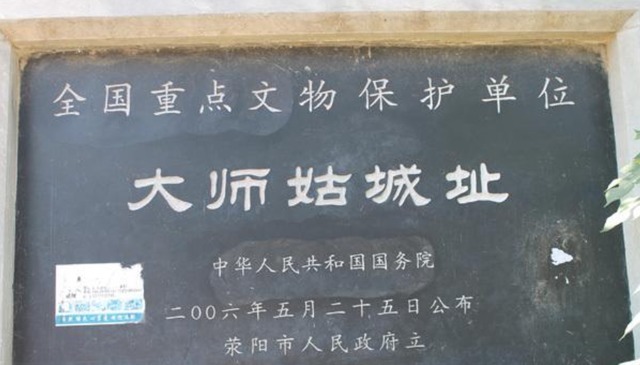 全国重点文物保护单位
大师姑城址
中华人民共和国国务院
二〇〇六年五月二十五日公布
荥阳市人民政府立